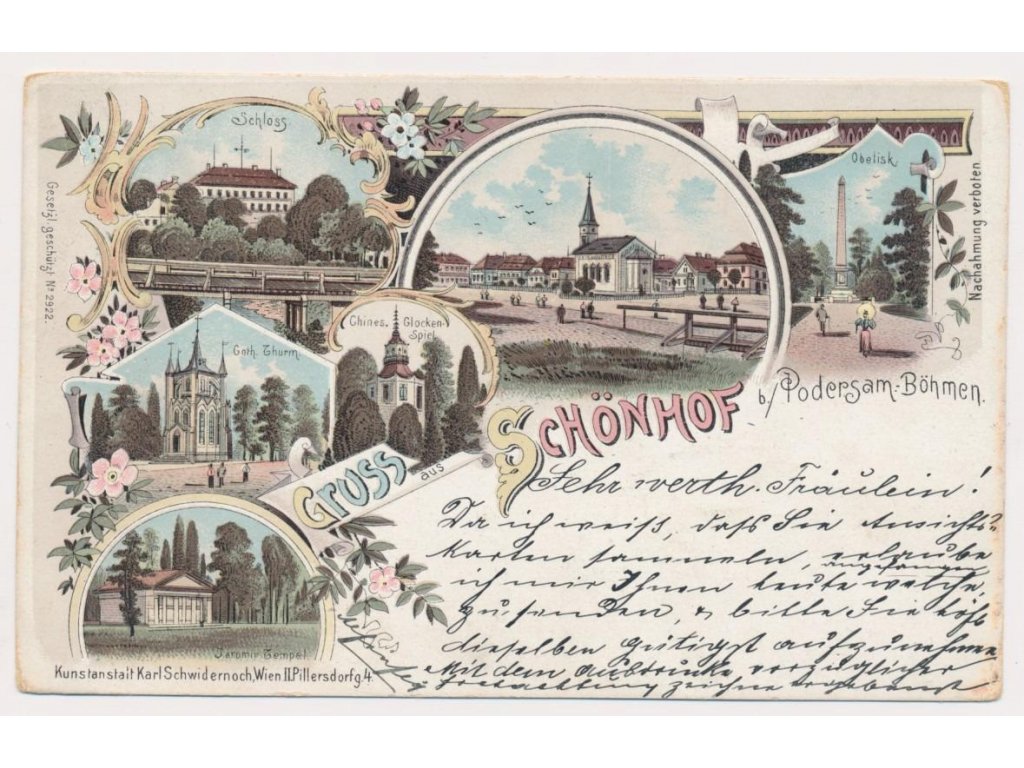 Schloss.
Obelisk.
Gesetzl. geschützt Nº 2922.
Nachahmung verboten
Chines. Glocken-
Spiel.
Goth. Thurm.
Gruss aus Schönhof
b/ Podersam-Böhmen.
Jaromir Tempel.
Kunstanstalt Karl Schwidernoch, Wien II. Pillersdorfg. 4.
Sehr werth. Fräulein!
Da ich weiß, dass Sie Ansichts-
karten sammeln, erlaube
ich mir Ihnen heute welche
zu senden, & bitte Sie höfl
dieselben gütigst aufzunehmen
Mit dem Ausdrucke vorzüglicher
Hochachtung zeichne ergebenst